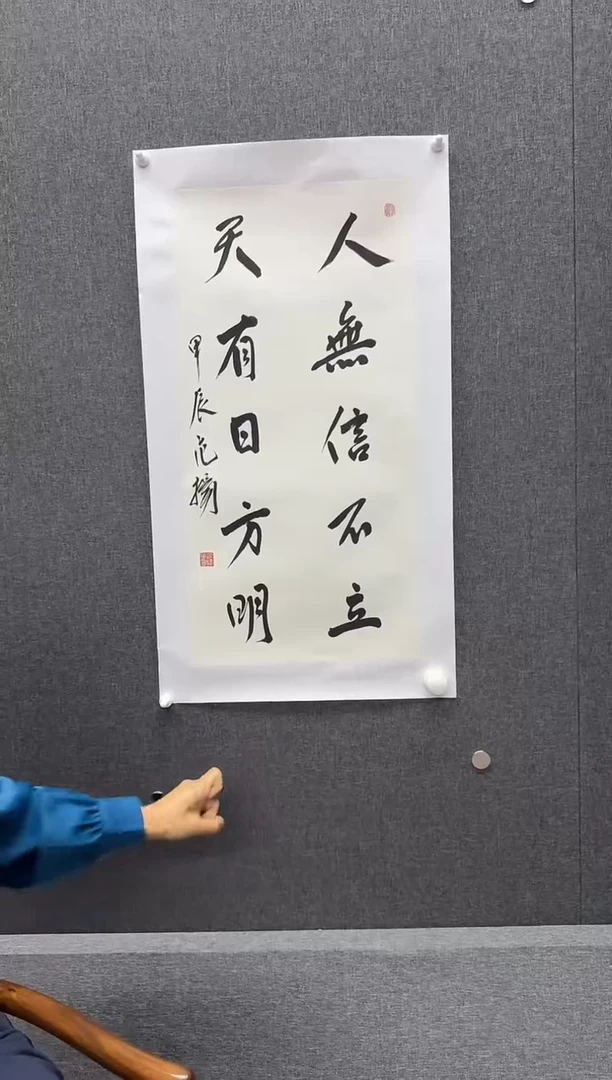 人無信不立
天有日方明
甲辰范揚